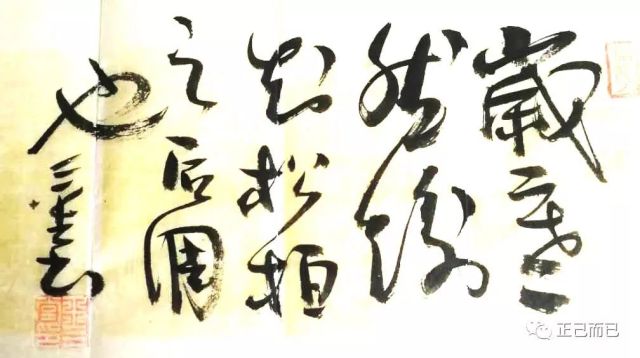 歲寒
然後
知松柏
之后凋
也 书
正己而已